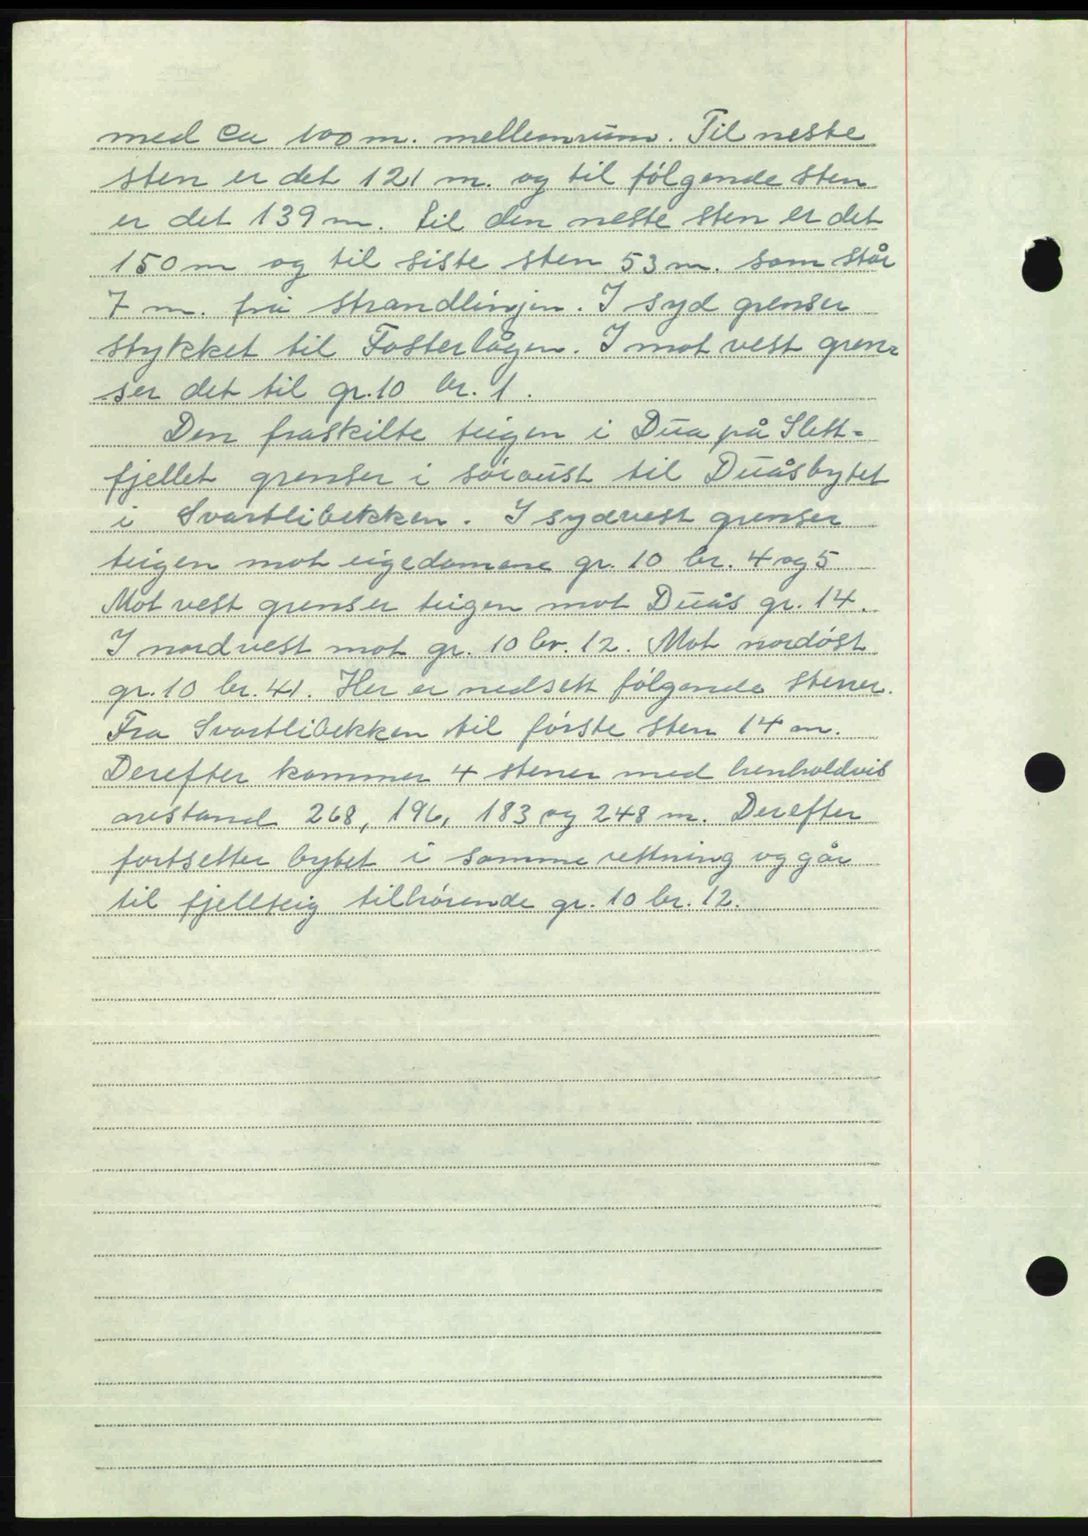 med ca 100 m. mellemrum. Til neste
sten er det 121 m. og til følgende sten
er det 139 m. til den neste sten er det
150 m og til siste sten 53 m. som står
7 m. fra strandlinjen. I syd grenser
stykket til Fosterlågen. I mot vest gren=
ser det til gr. 10 br. 1.
Den fraskilte teigen i Dua på Slett=
fjellet grenser i søraust til Duåsbytet
i Svartlibekken. I sydvest grenser
teigen mot eigedomene gr. 10 br. 4 og 5
Mot vest grenser teigen mot Duås gr. 14.
I nordvest mot gr. 10 br. 12. Mot nordøst
gr. 10 br. 41. Her er nedsett følgende stener.
Fra Svartlibekken til første sten 14 m.
Derefter kommer 4 stener med henholdvis
avstand 268, 196, 183 og 248 m. Derefter
fortsetter bytet i samme rettning og går
til fjellteig tilhørende gr. 10 br. 12.